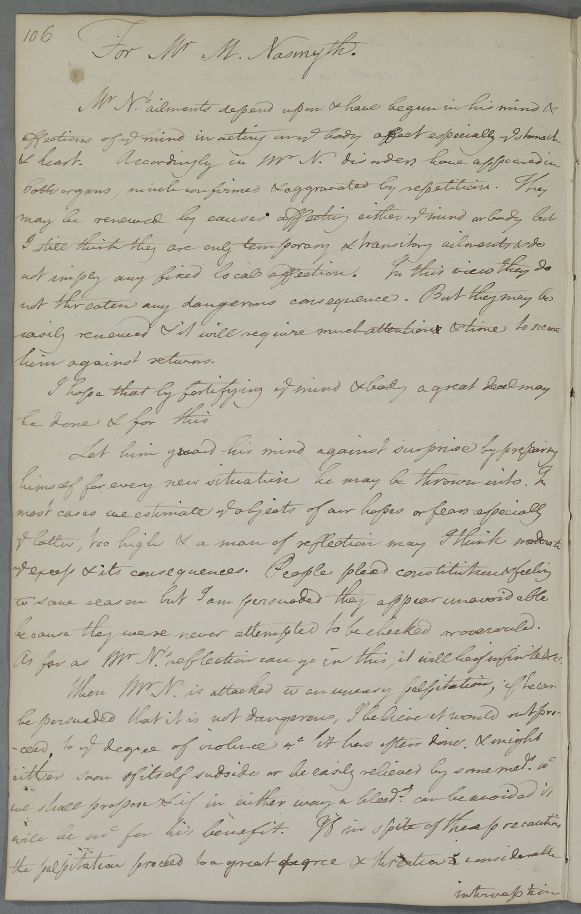 106
For Mr M. Nasmyth.
Mr N.'s ailments depend upon & have begun in his mind &
affections of ye mind in acting on ye body affect especially ye stomach
& heart. Accordingly in Mr N. disorders have appeared in
both organs, much confirmed & aggravated by repetition. They
may be renewed by causes affecting either ye mind or body but
I still think they are only temporary & transitory ailments & do
not imply any fixed local affection. In this view they do
not threaten any dangerous consequence. But they may be
easily renewed & it will require much attention & time to secure
him against returns.
I hope that by fortifying ye mind & body a great deal may
be done & for this
Let him guard his mind against surprise by preparing
himself for every new situation he may be thrown into. In
most cases we estimate ye objects of our hopes or fears especially
ye latter, too high & a man of reflection may I think moderate
ye excess & its consequences. People plead constitution & feeling
wt some reason but I am persuaded they appear unavoidable
because they were never attempted to be checked or overruled.
As far as Mr N.'s reflection can go in this, it will be of infinite service.
When Mr N. is attacked wt an uneasy palpitation, if he can
be persuaded that it is not dangerous, I believe it would not pro-
-ceed, to ye degree of violence wc it has often done, & might
either soon of itself subside or be easily relieved by some meds. wc
we shall propose & if in either way a bleedg. can be avoided it
will be mc for his benefit. If in spite of these precautions
the palpitation proceed to a great degree & threaten a considerable
interruption